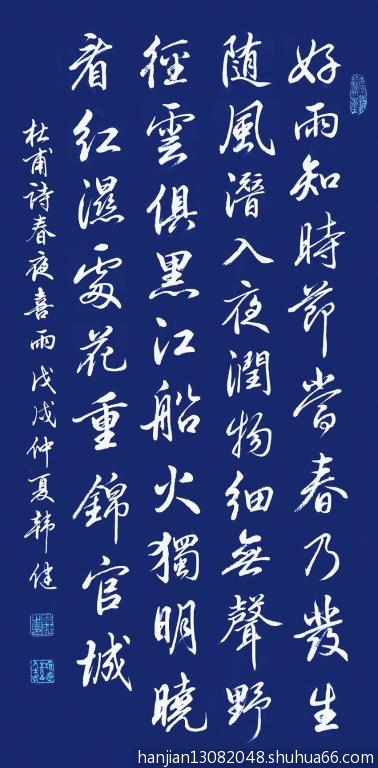 好雨知時節當春乃發生
随風潛入夜潤物細無聲野
徑雲俱黑江船火獨明曉
看紅濕處花重錦官城
杜甫詩春夜喜雨戊戌仲夏韩健
hanjian13082048.shuhua66.com